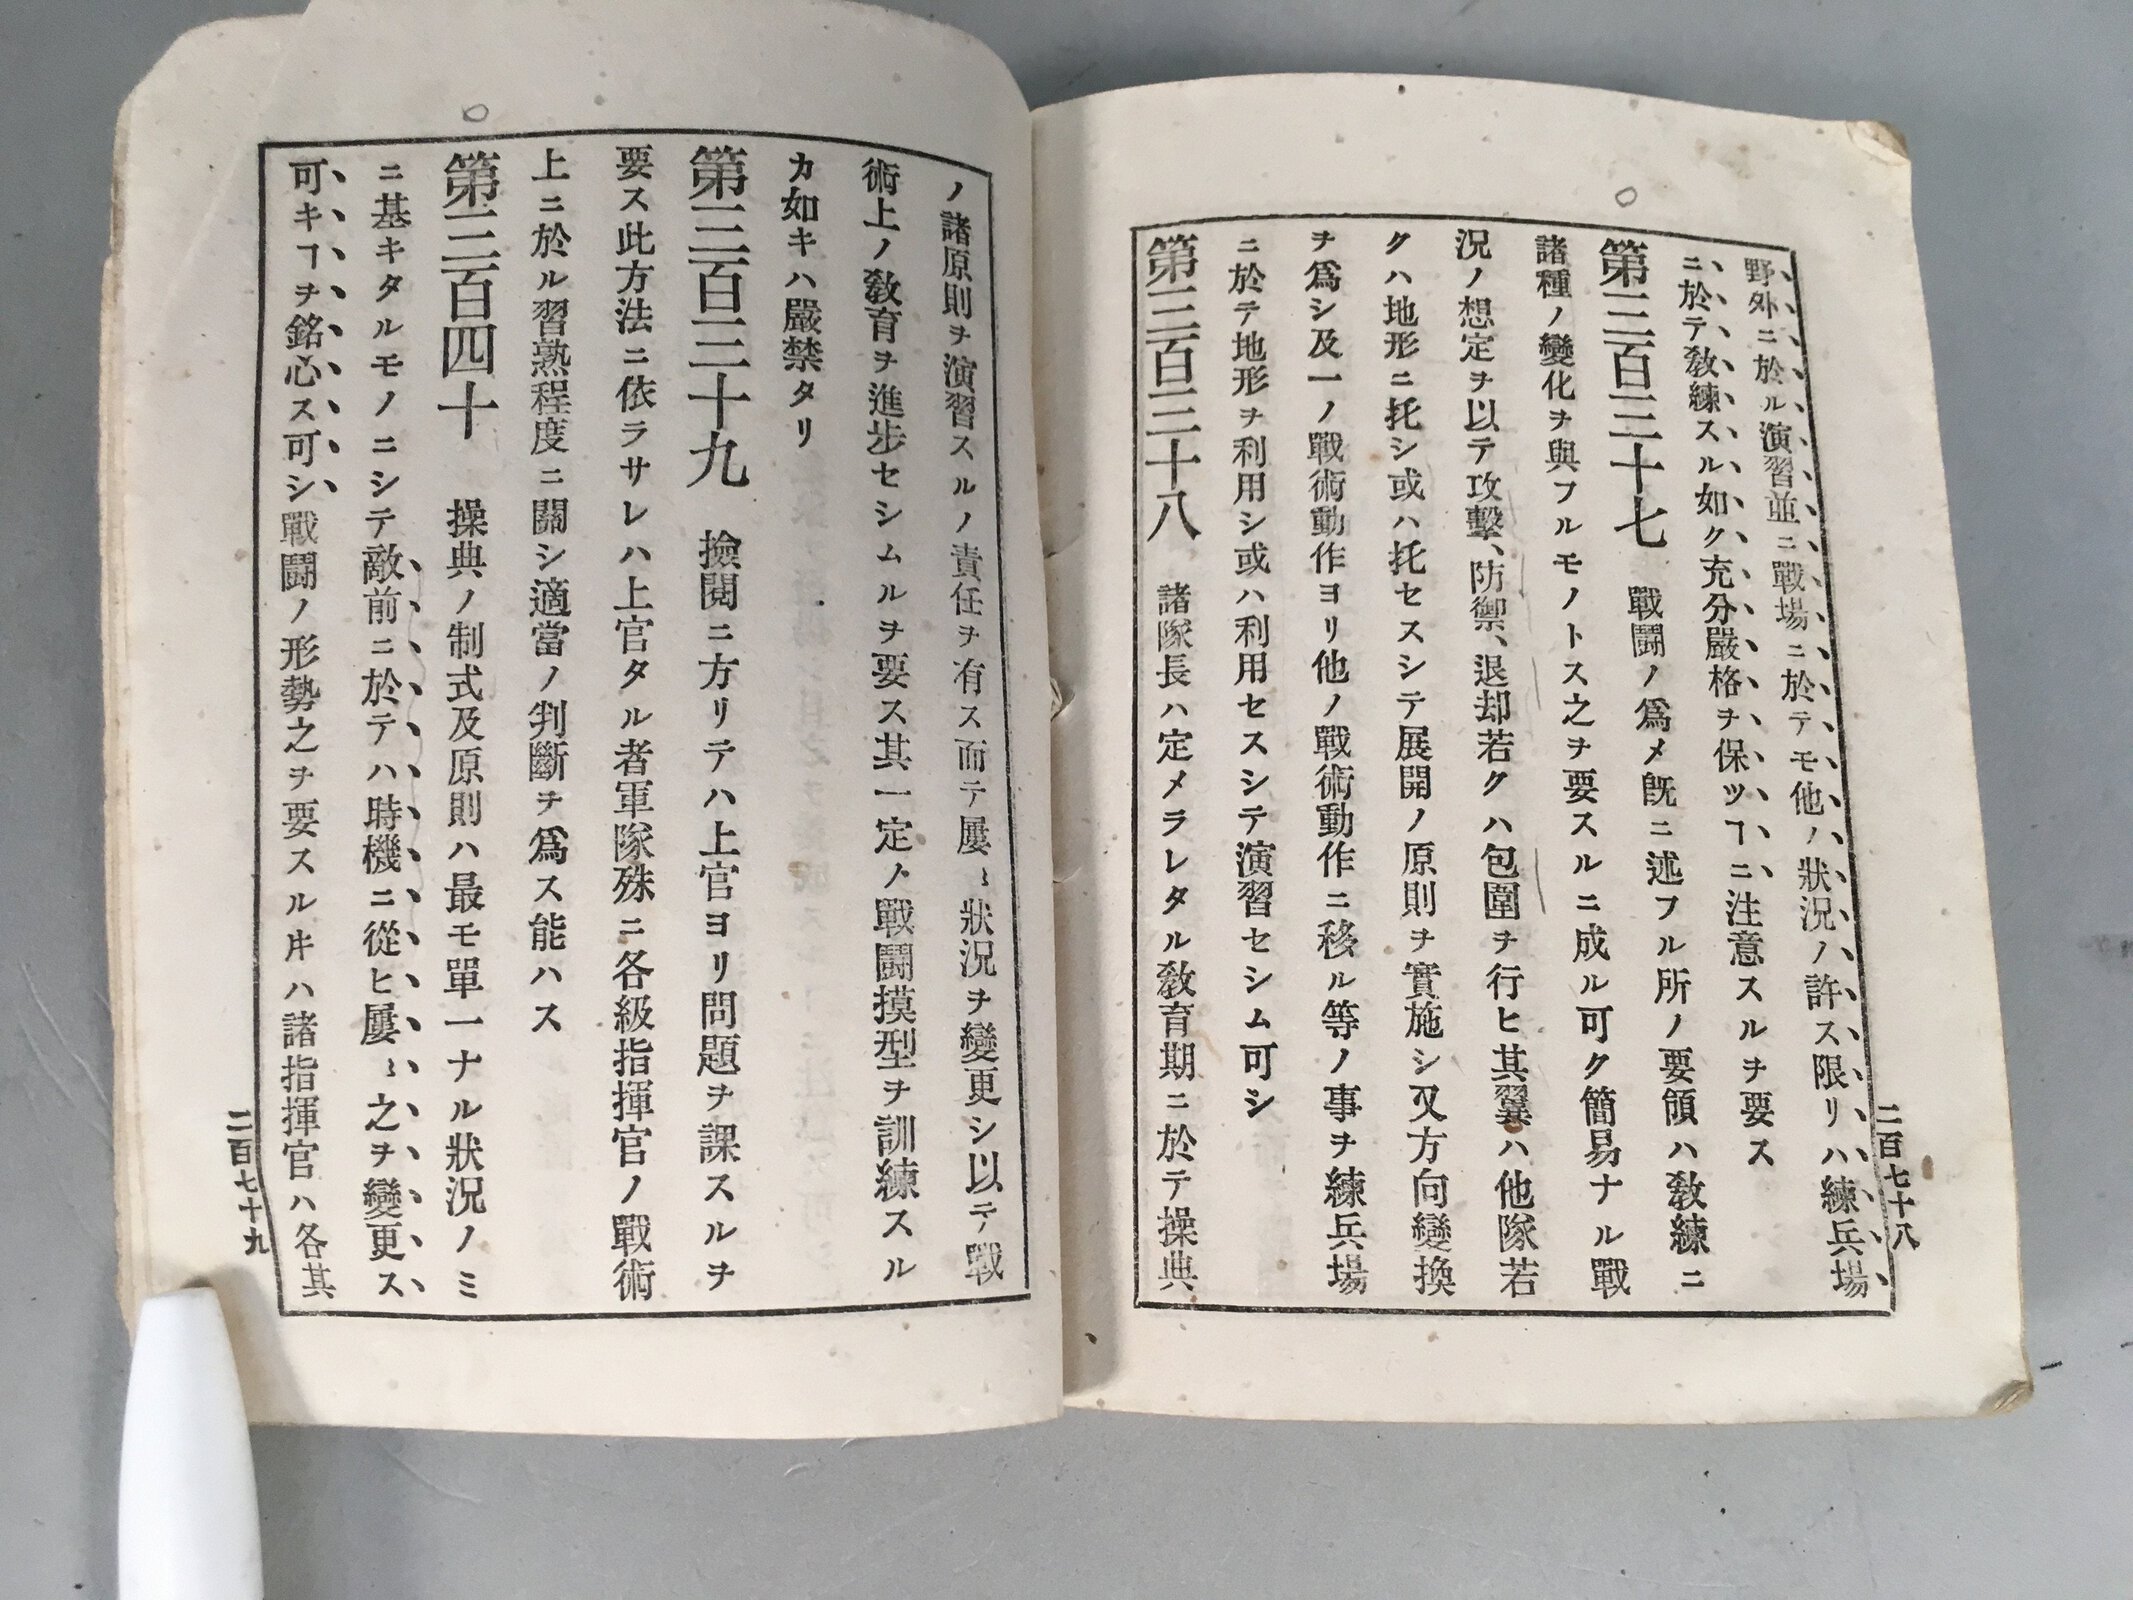 野外ニ於ル演習並ニ戰場ニ於テモ他ノ狀況ノ許ス限リハ練兵場
ニ於テ敎練スル如ク充分嚴格ヲ保ツヿニ注意スルヲ要ス
第三百三十七　戰鬪ノ爲メ旣ニ述フル所ノ要領ハ敎練ニ
諸種ノ變化ヲ與フルモノトス之ヲ要スルニ成ル可ク簡易ナル戰
況ノ想定ヲ以テ攻擊、防禦、退却若クハ包圍ヲ行ヒ其翼ハ他隊若
クハ地形ニ托シ或ハ托セスシテ展開ノ原則ヲ實施シ又方向變換
ヲ爲シ及一ノ戰術動作ヨリ他ノ戰術動作ニ移ル等ノ事ヲ練兵場
ニ於テ地形ヲ利用シ或ハ利用セスシテ演習セシム可シ
第三百三十八　諸隊長ハ定メラレタル敎育期ニ於テ操典
二百七十八
ノ諸原則ヲ演習スルノ責任ヲ有ス而テ屢〻狀況ヲ變更シ以テ戰
術上ノ敎育ヲ進步セシムルヲ要ス其一定ノ戰鬪摸型ヲ訓練スル
カ如キハ嚴禁タリ
第三百三十九　撿閱ニ方リテハ上官ヨリ問題ヲ課スルヲ
要ス此方法ニ依ラサレハ上官タル者軍隊殊ニ各級指揮官ノ戰術
上ニ於ル習熟程度ニ關シ適當ノ判斷ヲ爲ス能ハス
第三百四十　操典ノ制式及原則ハ最モ單一ナル狀況ノミ
ニ基キタルモノニシテ敵前ニ於テハ時機ニ從ヒ屢〻之ヲ變更ス
可キヿヲ銘心ス可シ戰鬪ノ形勢之ヲ要スル𪜈ハ諸指揮官ハ各其
二百七十九